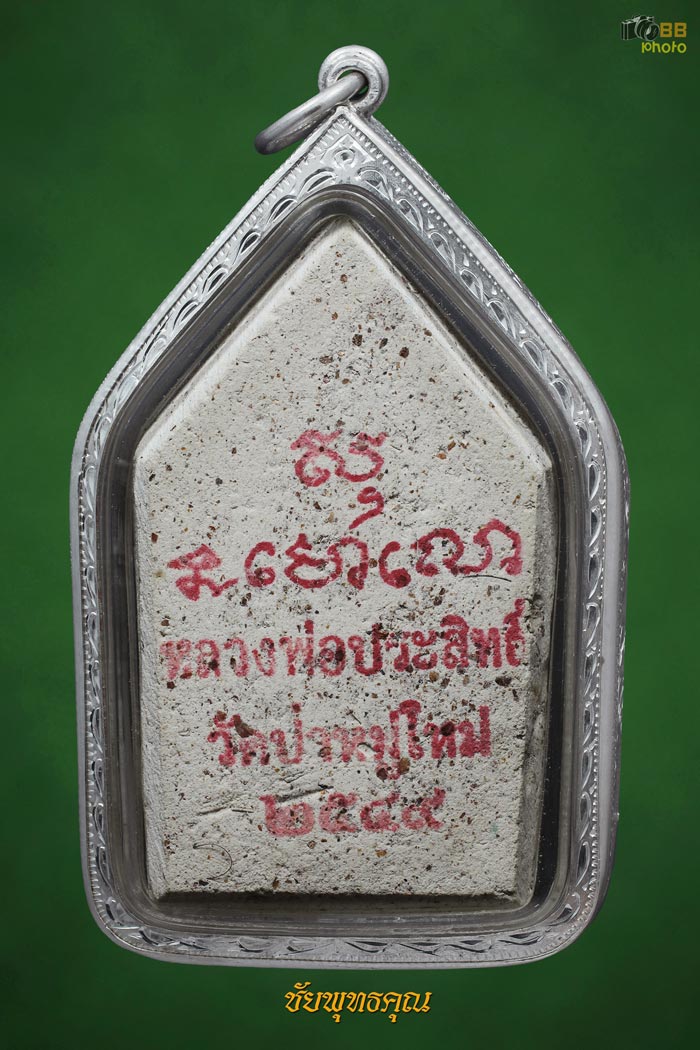 BB
photo
หลวงพ่อประสิทธิ์
วัดป่าหมู่ใหม่
๒๕๔๙
ชัยพุทธคุณ